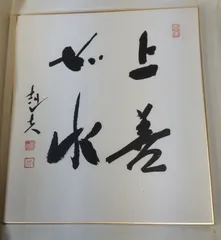 上善
如水